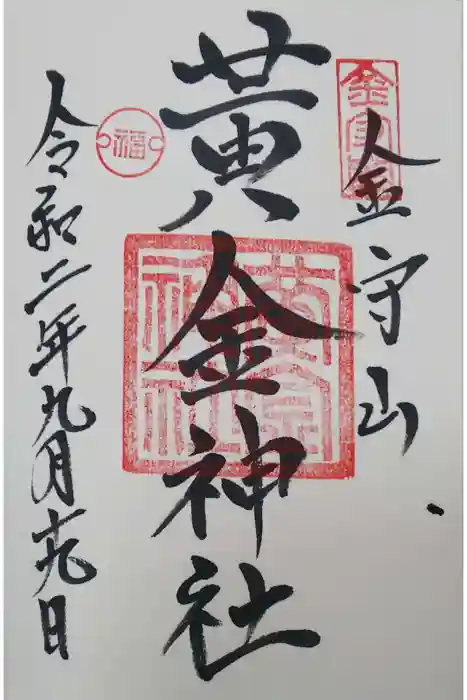 金守山
黄金神社
令和二年九月十九日
福
黄金神社